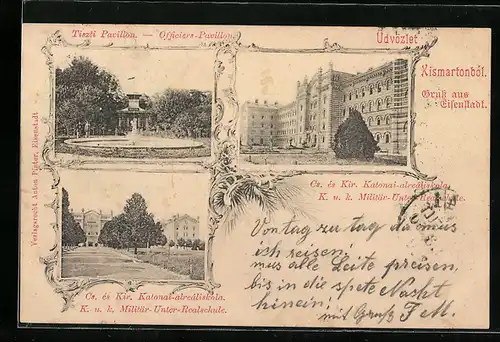 Tiszti Pavillon. — Officiers-Pavillon.
Üdvözlet
Kismartonból.
Gruß aus
Eisenstadt.
Verlagsrecht Anton Pinter, Eisenstadt
Cs. és Kir. Katonai-alreáliskola.
K. u. k. Militär-Unter-Realschule.
Cs. és Kir. Katonai-alreáliskola.
K. u. k. Militär-Unter-Realschule.
Von tag zu tag da mus
ich reisen,
mus alle Leite preisen,
bis in die spete Nacht
hinein!
mit Gruß